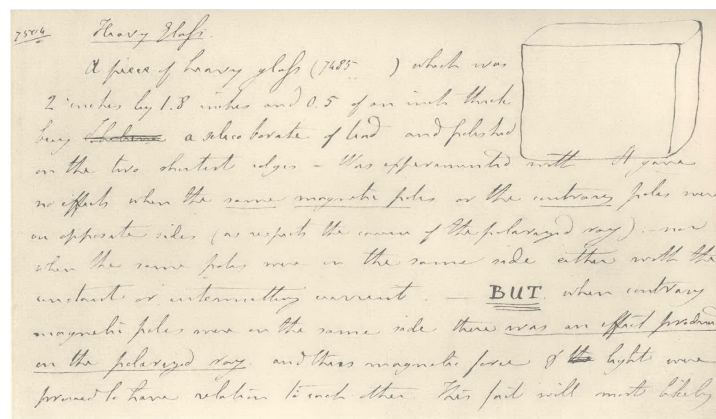 7504 Heavy Glass.
A piece of heavy glass (7485 ) which was
2 inches by 1.8 inches and 0.5 of an inch thick
being a silico borate of lead and polished
on the two shortest edges - Was experimented with It gave
no effects when the same magnetic poles or the contrary poles were
on opposite sides (as respects the course of the polarized ray) - nor
when the same poles were on the same side either with the
constant or intermitting current - BUT when contrary
magnetic poles were on the same side there was an effect produced
on the polarized ray and thus magnetic force & light were
proved to have relation to each other. This fact will most likely